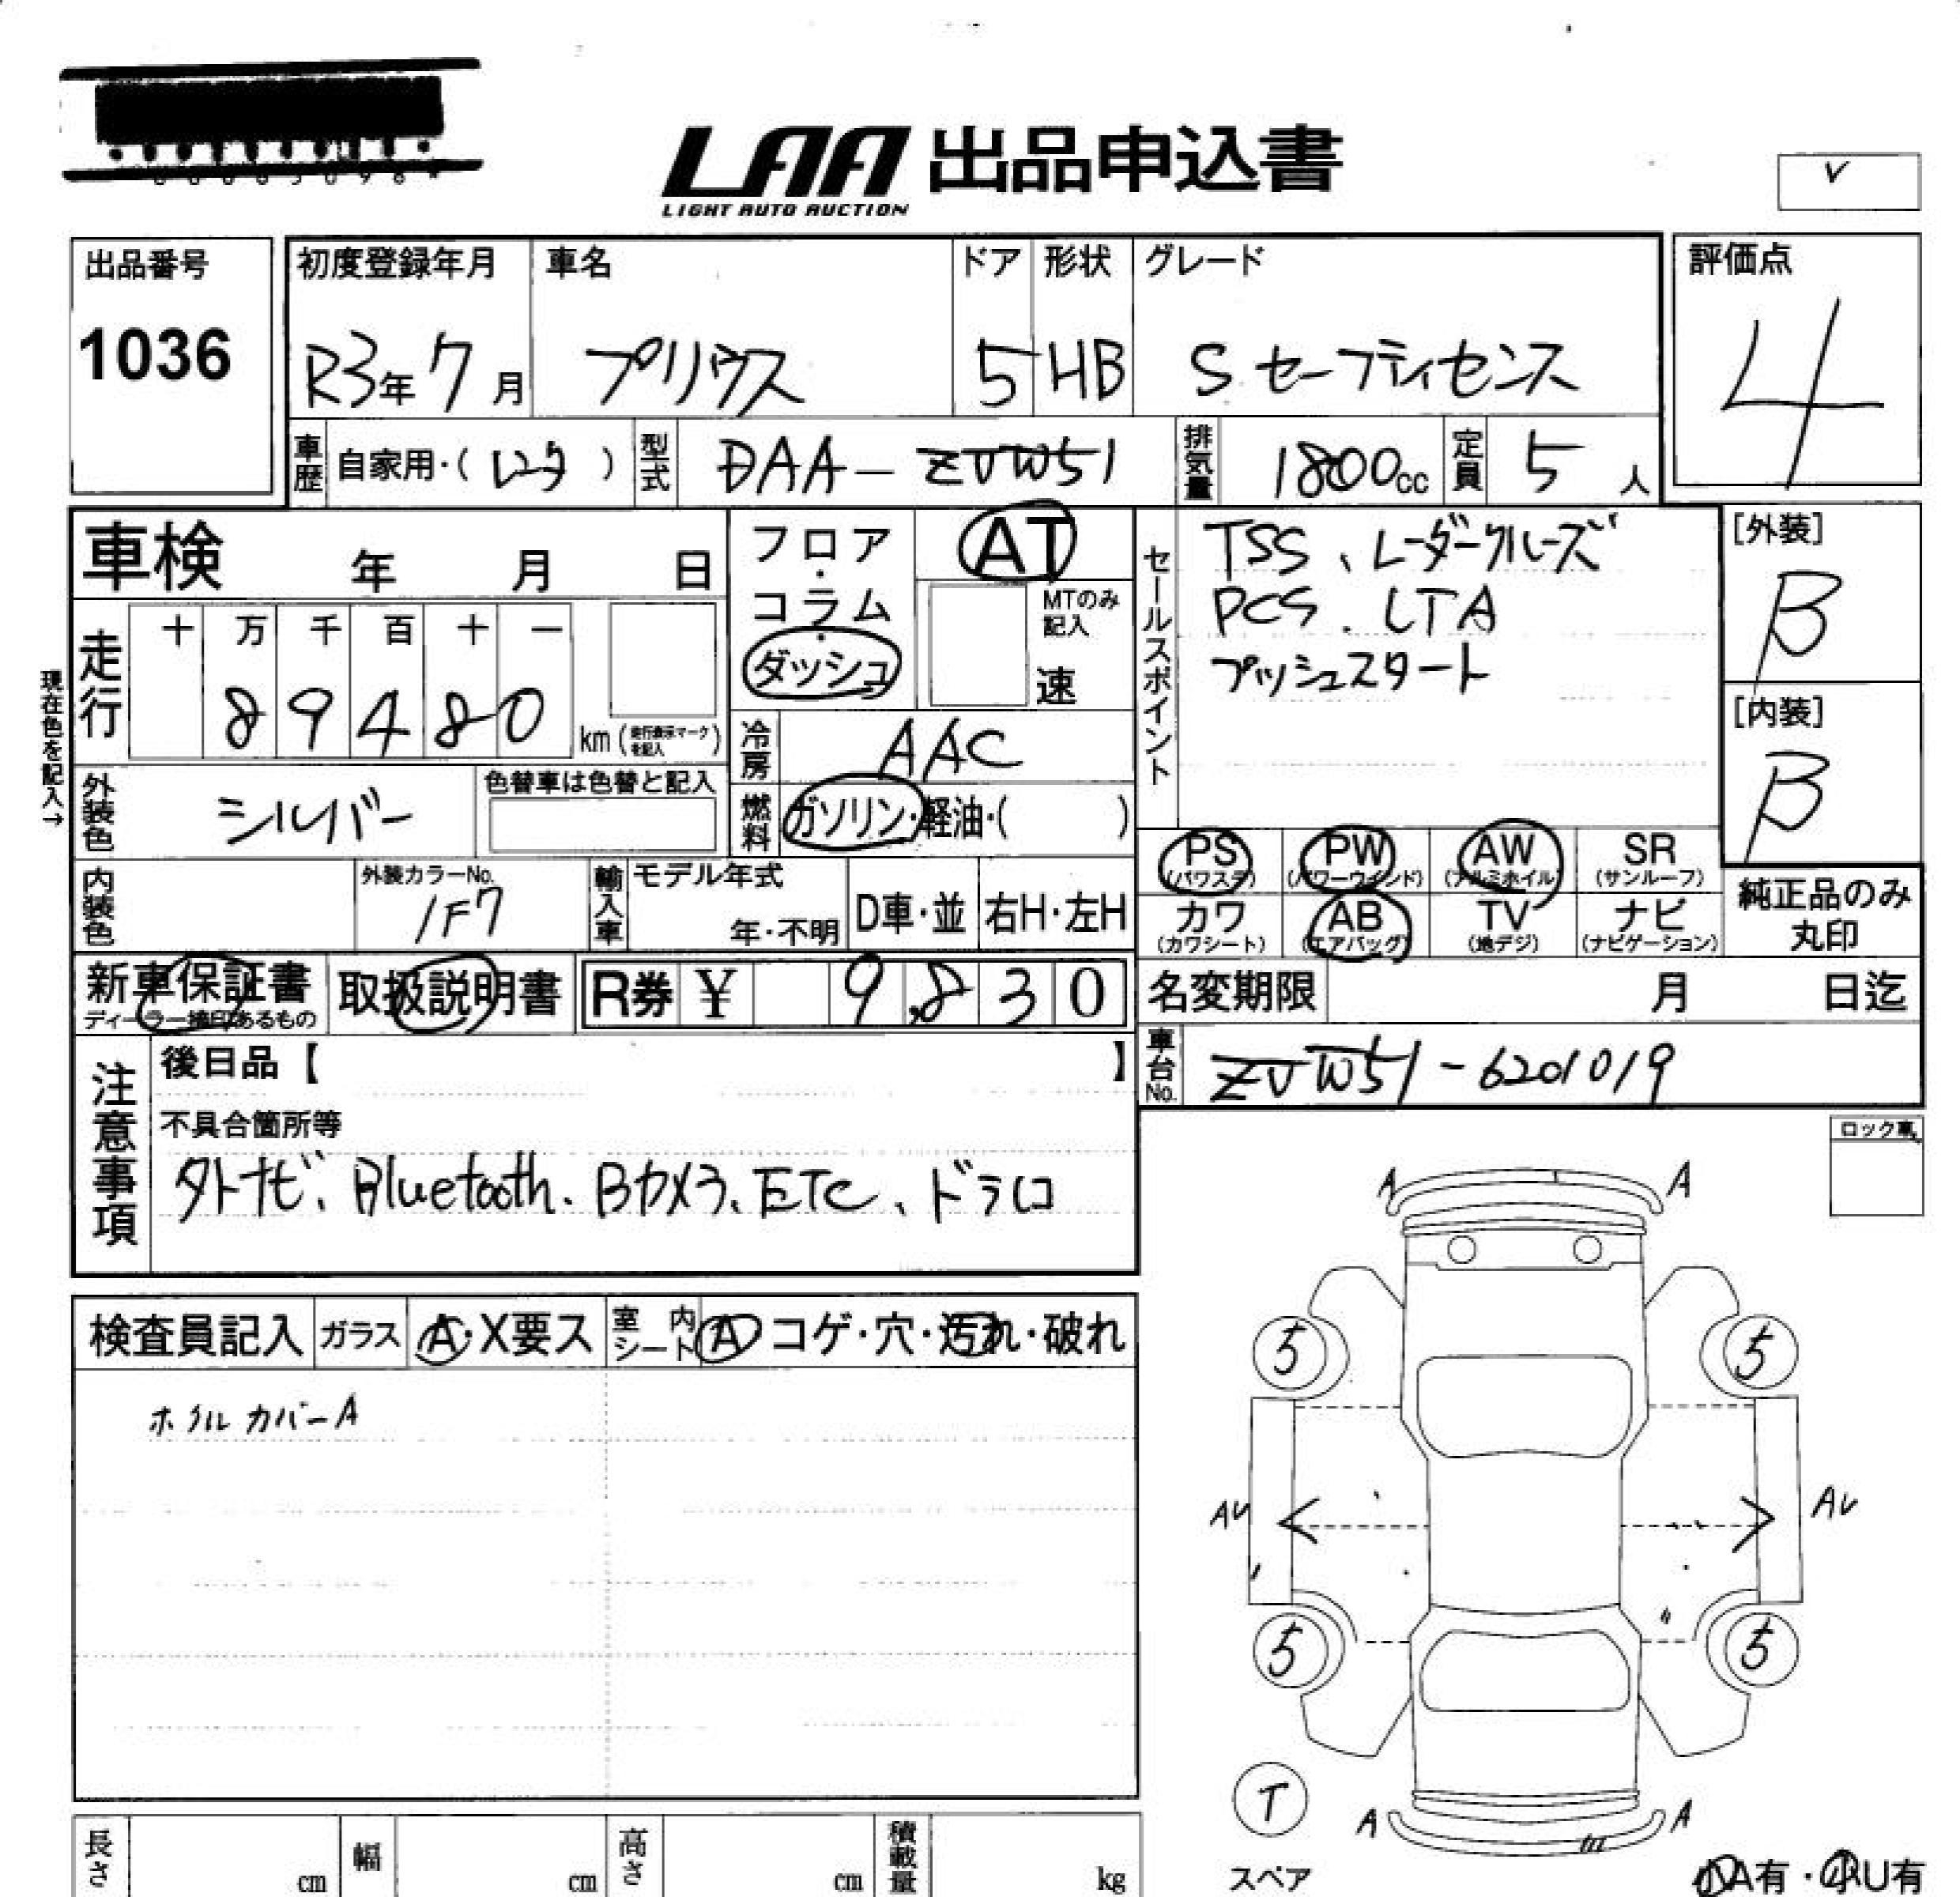 LAA 出品申込書
LIGHT AUTO AUCTION
出品番号
1036
初度登録年月
R3年7月
車名
プリウス
ドア
5
形状
HB
グレード
S セーフティセンス
評価点
4
車歴
自家用・(レンタ)
型式
DAA-ZVW51
排気量
1800cc
定員
5人
車検 年 月 日
フロア・コラム・ダッシュ
AT
MTのみ記入
速
セールスポイント
TSS、レーダークルーズ
PCS、LTA
プッシュスタート
[外装]
B
[内装]
B
現在色を記入→
走行
十 万 千 百 十 一
8 9 4 8 0
km(走行表示マークを記入)
冷房
AAC
外装色
シルバー
色替車は色替と記入
燃料
ガソリン・軽油・( )
PS (パワステ)
PW (パワーウインド)
AW (アルミホイル)
SR (サンルーフ)
カワ (カワシート)
AB (エアバッグ)
TV (地デジ)
ナビ (ナビゲーション)
純正品のみ
丸印
内装色
外装カラーNo.
1F7
輸入車
モデル年式
年・不明
D車・並
右H・左H
新車保証書
ディーラー捺印あるもの
取扱説明書
R券 ¥ 9,830
名変期限 月 日迄
注意事項
後日品【 】
不具合箇所等
外ナビ、Bluetooth、Bカメラ、ETC、ドラレコ
車台No.
ZVW51-6201019
ロック車
検査員記入
ガラス
A・X要ス
室内シート
A コゲ・穴・汚れ・破れ
ホイルカバーA
A A
5 5
AU AU
5 5
T
スペア
A A
小A有・小U有
長さ cm
幅 cm
高さ cm
積載量 kg